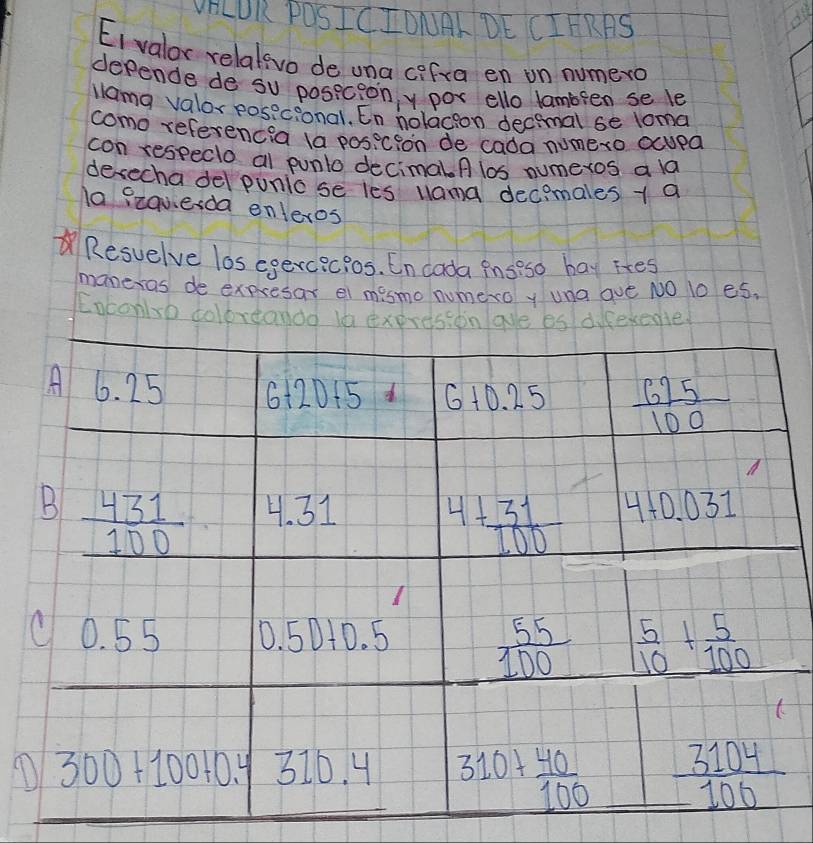 VALOR POSICIONAL DE CIFRAS
El valor relativo de una cifra en un numero
depende de su posición, y por ello tambien se le
llama valor posicional. En notacion decimal se toma
como referencia la posición de cada numero ocupa
con respecto al punto decimal. A los numeros a la
derecha del punto se les llama decimales y a
la izquierda enteros
Resuelve los egercicios. En cada insiso hay tres
maneras de expresar el mismo numero y una que NO lo es.
Encontra coloreando la expresión que es diferente.
A 6.25 6+20+5 6+0.25 625/100
B 431/100 4.31 4+31/100 4+0.031
C 0.55 0.50+0.5 55/100 5/10 + 5/100
D 300+100+0.4 310.4 310+40/100 3104/100